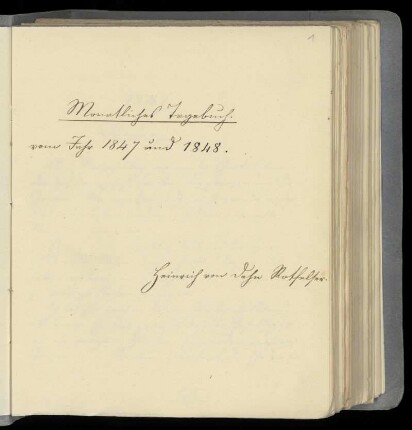 1
Monatliches Tagebuch.
vom Jahr 1847 und 1848.
Heinrich von Dehn Rothfelser.